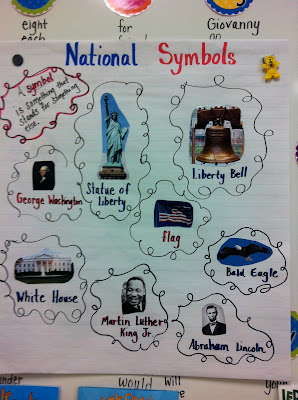 eight
each
for
Giovanny
National Symbols
A symbol
is something that
stands for something
else.
Statue of
Liberty
Liberty Bell
George Washington
Flag
Bald Eagle
White House
Martin Luther
King Jr.
Abraham Lincoln
would
will